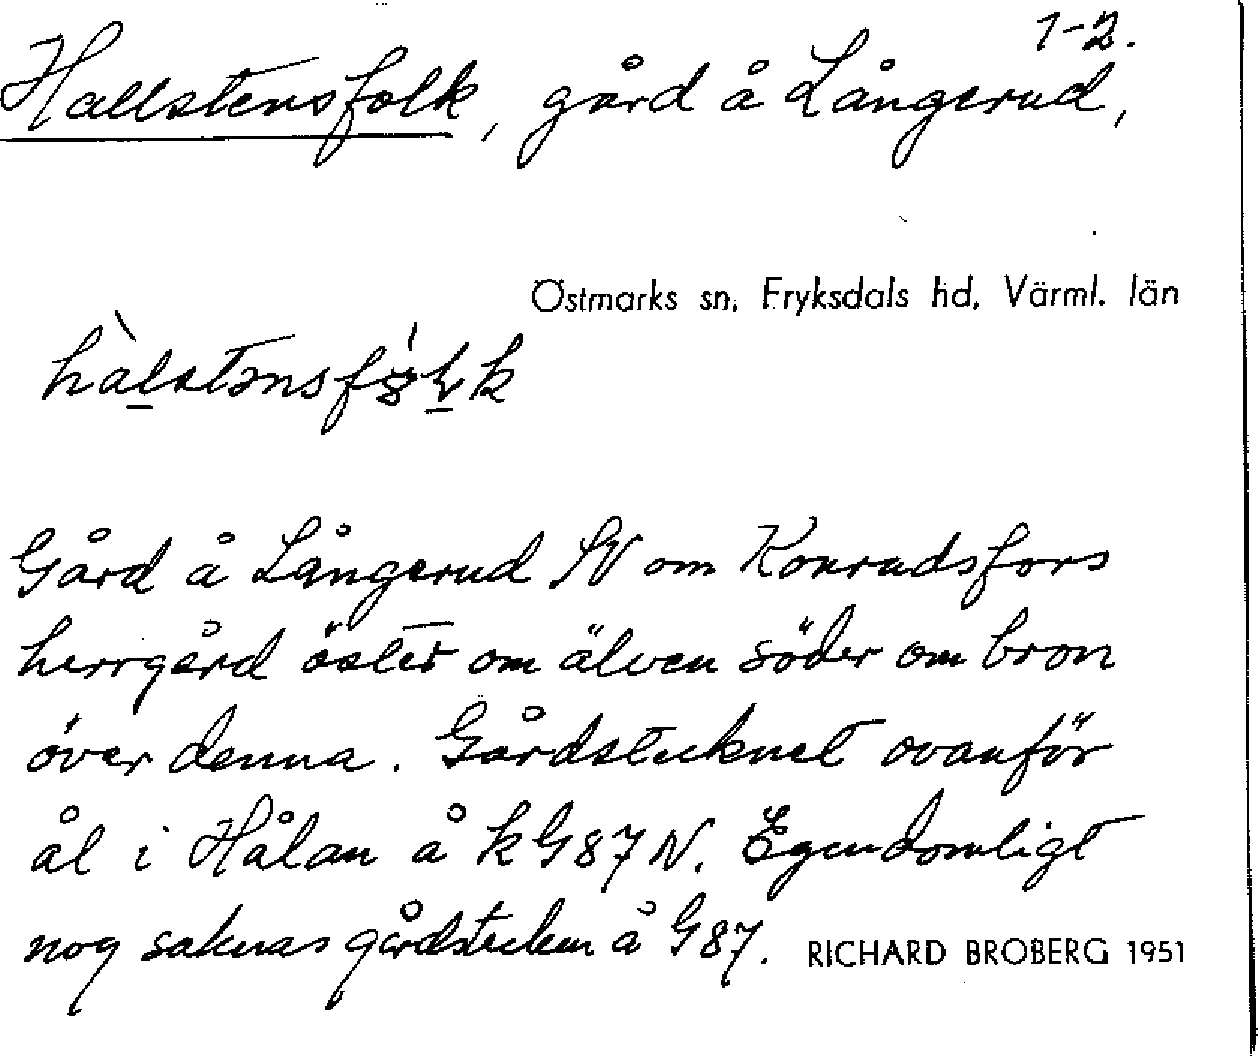 1-2.
Hallstensfolk, gård å Långerud,
Östmarks sn, Fryksdals hd, Värml. län
Gård å Långerud SV om Konradsfors
herrgård öster om älven söder om bron
över denna. Gårdstecknet ovanför
ål i Hålan å kG87N. Egendomligt
nog saknas gårdstecken å G87. RICHARD BROBERG 1951